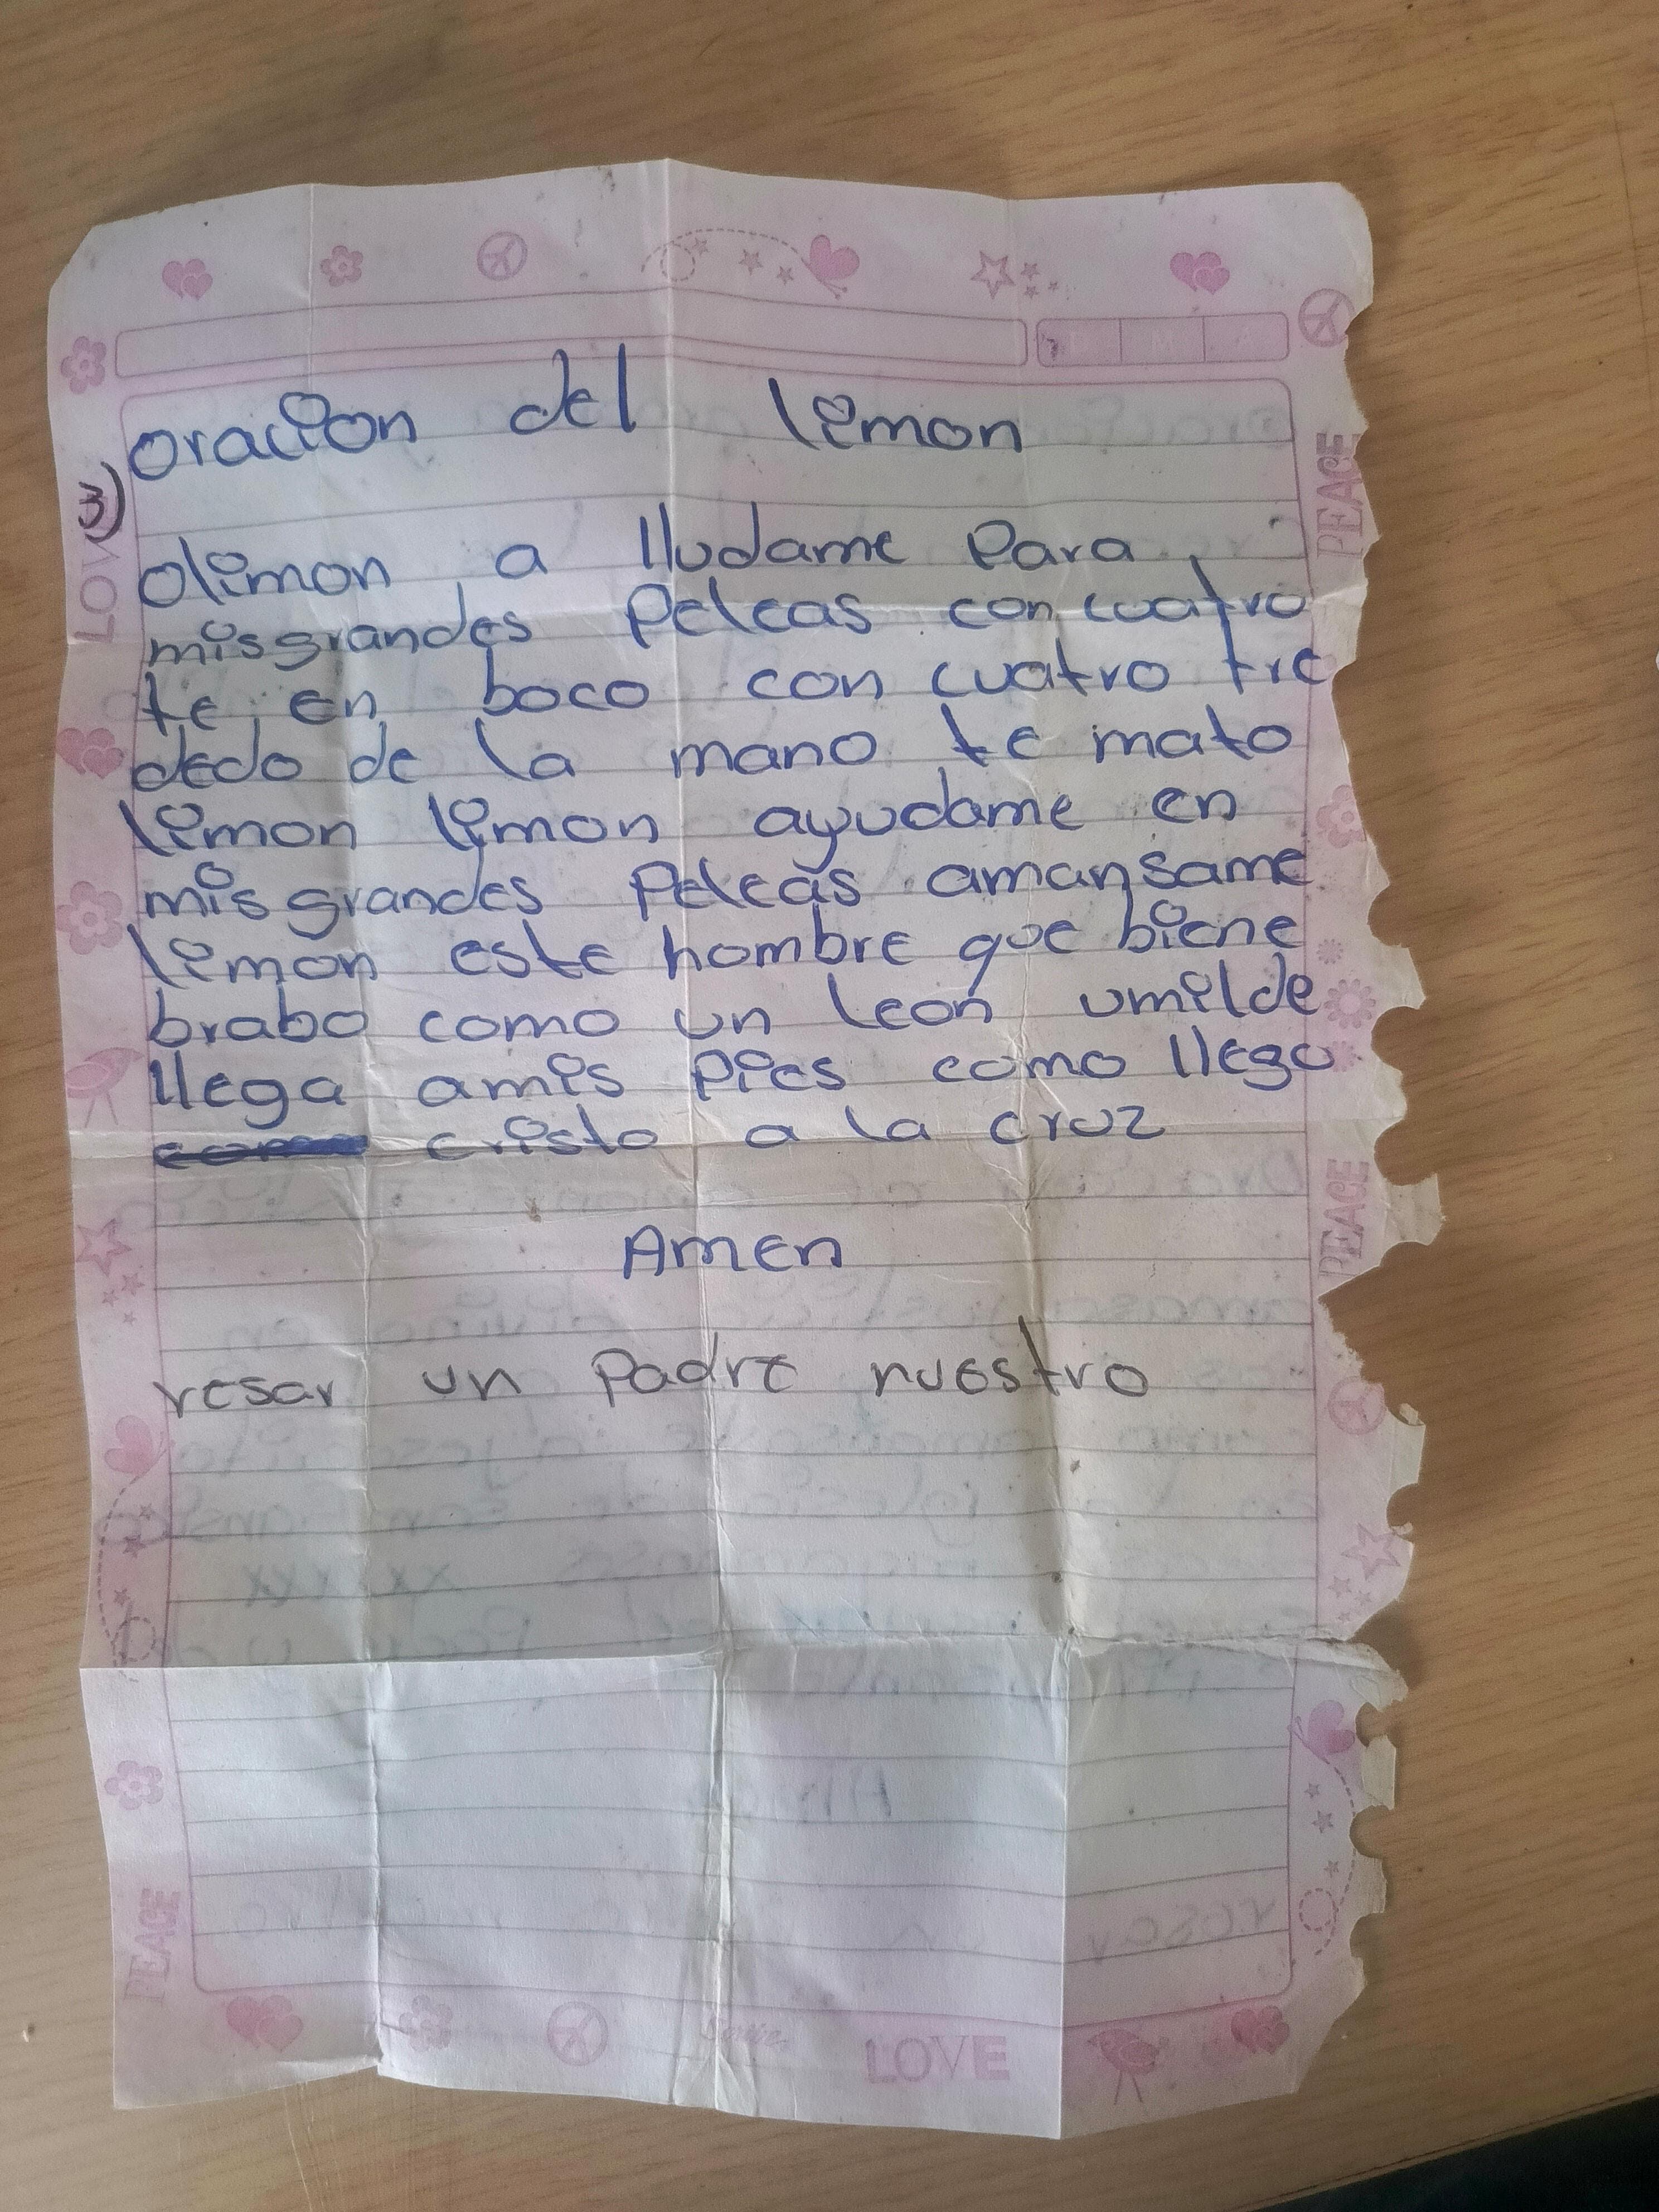 oracion del limon
3)
Olimon a lludame Para
misgrandes Peleas con cuatro
te en boco con cuatro tre
dedo de la mano te mato
limon limon ayudame en
mis grandes Peleas amansame
limon este hombre que biene
brabo como un leon umilde
llega amis pies como llego
cristo a la cruz
Amen
resar un Padre nuestro
LOVE
PEACE
PEACE
PEACE
LOVE